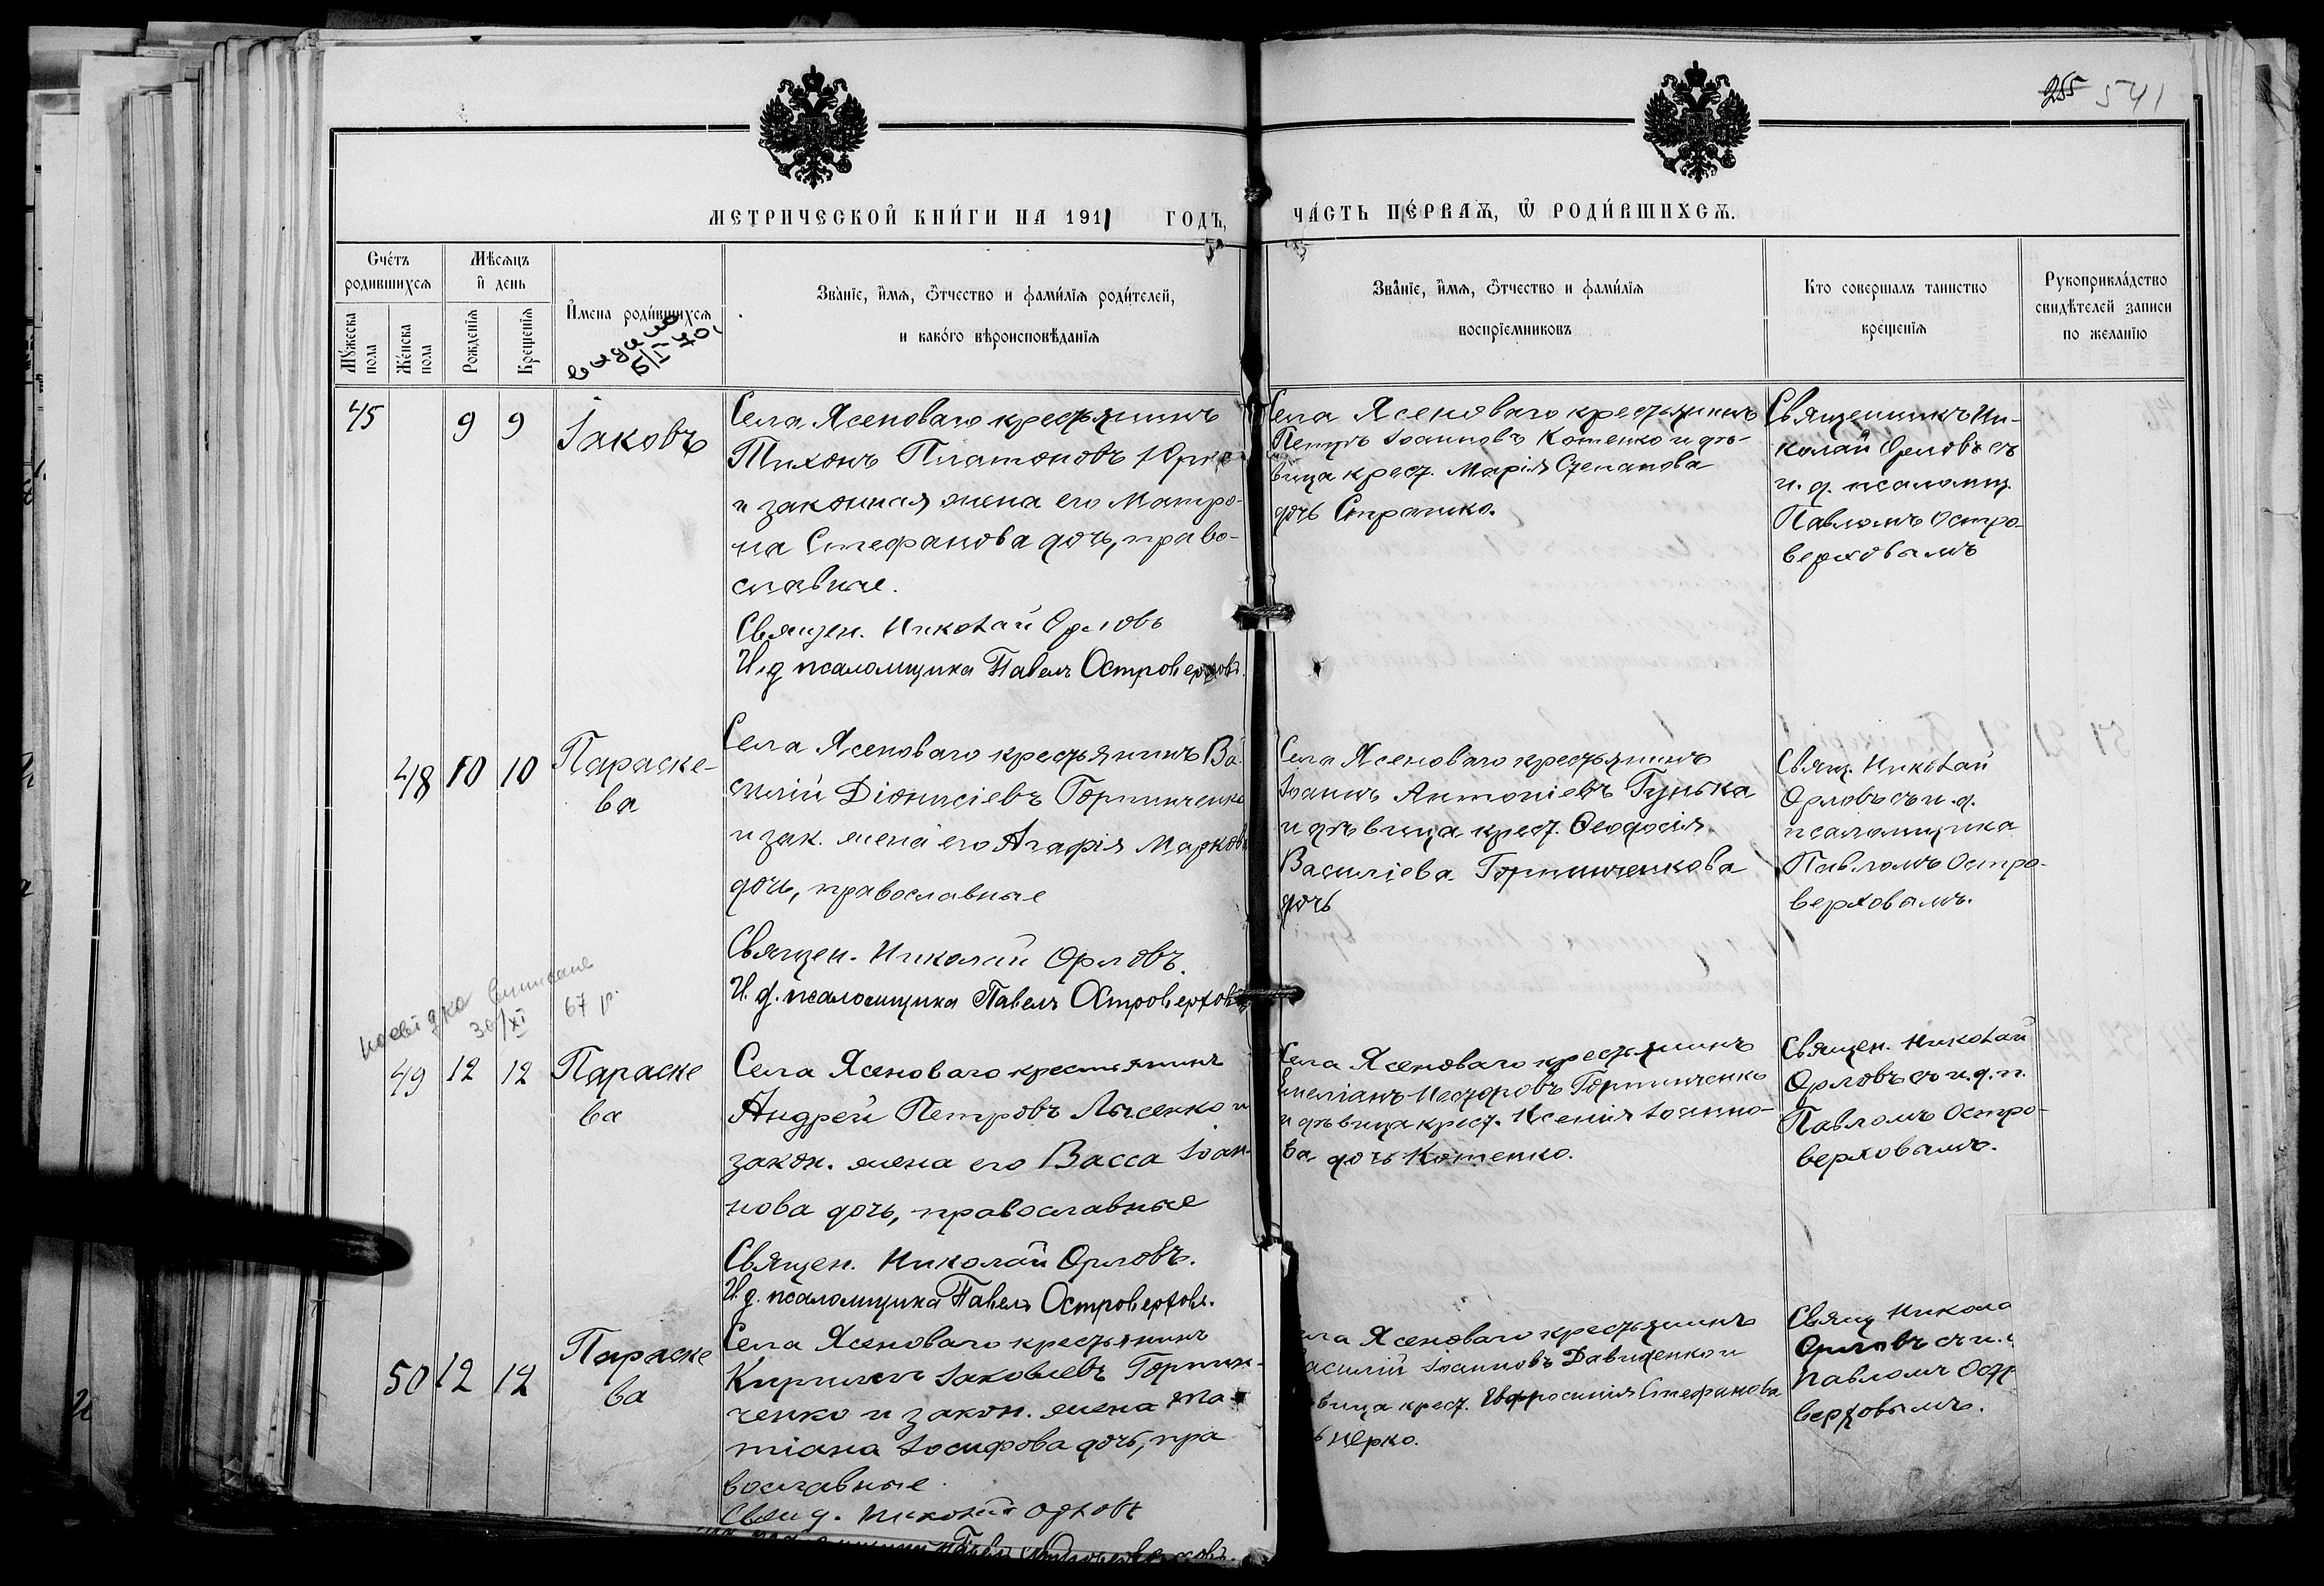 255 541
МЕТРИЧЕСКОЙ КНИ́ГИ НА 1911 ГОДЪ,
ЧА́СТЬ ПЕ́РВАѦ, Ѡ РОДИ́ВШИХСѦ.
Сче́тъ родившихсѧ
Мѣсѧцъ и день
Му́жеска пола
Же́нска пола
Рожденїѧ
Крещенїѧ
Имена роди́вшихсѧ
видано
5/I 70
Зва́нїе, и́мѧ, ѻ҆́тчество и фами́лїѧ роди́телей,
и како́го вѣроисповѣ́данїѧ
Зва́нїе, и́мѧ, ѻ҆́тчество и фами́лїѧ
воспрїе́мниковъ
Кто совершалъ таинство
крещенїѧ
Рукоприкла́дство
свидѣ́телей записи
по желанїю
45
9 9
Іаковъ
Села Ясеноваго крестьянинъ
Тихонъ Платоновъ Юрко
и законная жена его Матро-
на Стефанова дочь, право-
славные.
Священ. Николай Орловъ
И.д псаломщика Павелъ Островерховъ.
Села Ясеноваго крестьянинъ
Петръ Іоанновъ Котенко и дѣ-
вица крест. Марія Степанова
дочь Страшко.
Священникъ Ни-
колай Орловъ съ
и. д. псаломщ.
Павломъ Остро-
верховымъ
48 10 10
Параске-
ва
Села Ясеноваго крестьянинъ Ва-
силій Діонисіевъ Горпинченко
и зак. жена его Агафія Маркова
дочь, православные
Священ. Николай Орловъ.
И. д. псаломщика Павелъ Островерховъ
Села Ясеноваго крестьянинъ
Іоаннъ Антоніевъ Гунька
и дѣвица крест. Ѳеодосія
Василіева Горпинченкова
дочь
Свящ. Николай
Орловъ съ и. д.
псаломщика
Павломъ Остро-
верховымъ.
довідка виписана
30/XI 67 р.
49 12 12
Параске
ва
Села Ясеноваго крестьянинъ
Андрей Петровъ Лысенко и
закон. жена его Васса Іоан-
нова дочь, православные
Священ. Николай Орловъ.
И. д. псаломщика Павелъ Островерховъ.
Села Ясеноваго крестьянинъ
Емеліанъ Несторовъ Горпинченко
и дѣвица крест. Ксенія Іоанно-
ва дочь Котенко.
Священ. Николай
Орловъ съ и. д. п.
Павломъ Остро-
верховымъ.
50 12 12
Параске
ва
Села Ясеноваго крестьянинъ
Кириллъ Іаковлевъ Горпин-
ченко и закон. жена Та
тіана Іосифова дочь, пра
вославные
Свящ. Николай Орловъ
Павелъ Островерховъ.
ла Ясеноваго крестьянинъ
асилій Іоанновъ Давиденко и
вица крест. Евфросинія Стефанова
ь Юрко.
Свящ Никола
Орловъ съ и.
Павломъ Остр
верховымъ.